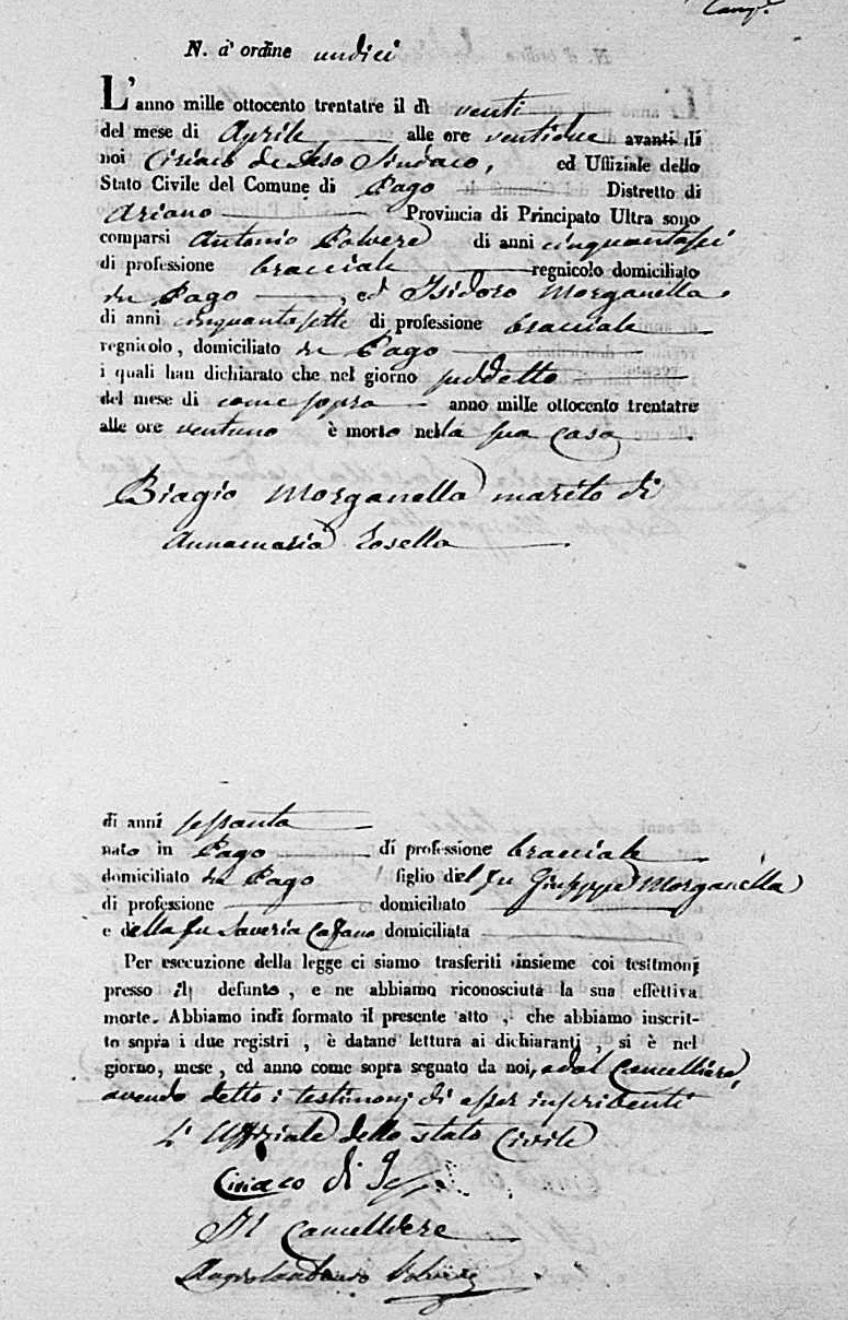 Camp.e
N. d' ordine undici
L'anno mille ottocento trentatre il dì venti
del mese di Aprile alle ore ventidue avanti di
noi Ciriaco de Sindaco, ed Uffiziale dello
Stato Civile del Comune di Pago Distretto di
Ariano Provincia di Principato Ultra sono
comparsi Antonio Polvere di anni cinquantasei
di professione bracciale regnicolo domiciliato
in Pago, ed Isidoro Morganella
di anni cinquantasette di professione bracciale
regnicolo, domiciliato in Pago
i quali han dichiarato che nel giorno suddetto
del mese di come sopra anno mille ottocento trentatre
alle ore ventuno è morto nella sua casa
Biagio Morganella marito di
Annamaria Iosella
di anni sessanta
nato in Pago di professione bracciale
domiciliato in Pago figlio del fu Giuseppe Morganella
di professione domiciliato
e della fu Saveria Cafano domiciliata
Per esecuzione della legge ci siamo trasferiti insieme coi testimonj
presso il defunto, e ne abbiamo riconosciuta la sua effettiva
morte. Abbiamo indi formato il presente atto, che abbiamo inscrit-
to sopra i due registri, è datane lettura ai dichiaranti, si è nel
giorno, mese, ed anno come sopra segnato da noi, e dal Cancelliere,
avendo detto i testimonj di esser inscribenti
L' Uffiziale dello stato Civile
Ciriaco di
Il Cancelliere
Polvere